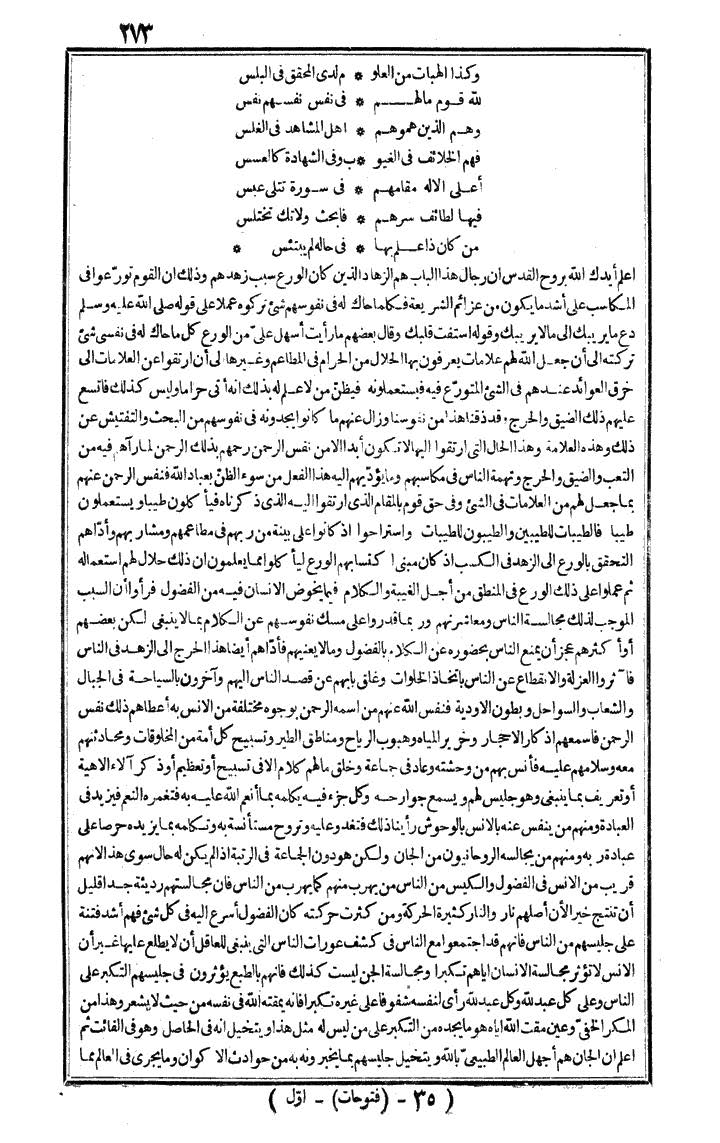 ٢٧٣
وكذا الهبات من العلو * م لدى المحقق فى البلس
لله قــوم مالهــــم * فى نفس نفسهم نفس
وهــم الذين هموهــم * اهل المشاهد فى الغلس
فهم الخلائف فى الغيو * ب وفى الشهادة كالعسس
أعلى الاله مقامهــم * فى ســورة تتلى عبس
فيها لطائف سرهــم * فابحث ولاتك تختلس
من كان ذا علم بها * فى حاله لم يبتئس *
اعلم أيدك الله بروح القدس ان رجال هذا الباب هم الزهاد الذين كان الورع سبب زهدهم وذلك ان القوم تورّعوا فى
المكاسب على أشد ما يكون من عزائم الشريعة فكلما حاك له فى نفوسهم شئ تركوه عملا على قوله صلى الله عليه وسلم
دع ما يريبك الى مالا يريبك وقوله استفت قلبك وقال بعضهم مارأيت أسهل علىّ من الورع كل ما حاك له فى نفسى شئ
تركته الى أن جعل الله لهم علامات يعرفون بها الحلال من الحرام فى المطاعم وغيرها الى أن ارتقوا عن العلامات الى
خرق العوائد عندهم فى الشئ المتورّع فيه فيستعملونه فيظنّ من لاعلم له بذلك انه أتى حراما وليس كذلك فاتسع
عليهم ذلك الضيق والحرج وقد ذقنا هذا من نفوسنا وزال عنهم ما كانوا يجدونه فى نفوسهم من البحث والتفتيش عن
ذلك وهذه العلامة وهذا الحال التى ارتقوا اليها لا تكون أبدا الا من نفس الرحمن رحمهم بذلك الرحمن لما رآهم فيه من
التعب والضيق والحرج وتهمة الناس فى مكاسبهم وما يؤدّيهم اليه هذا الفعل من سوء الظنّ بعباد الله فنفس الرحمن عنهم
بما جعل لهم من العلامات فى الشئ وفى حق قوم بالمقام الذى ارتقوا اليه الذى ذكرناه فيأكلون طيبا ويستعملون
طيبا فالطيبات للطيبين والطيبون للطيبات واستراحوا اذ كانوا على بينة من ربهم فى مطاعمهم ومشاربهم وأدّاهم
التحقق بالورع الى الزهد فى الكسب اذ كان مبنى اكتسابهم الورع ليأكلوا مما يعلمون ان ذلك حلال لهم استعماله
ثم عملوا على ذلك الورع فى المنطق من أجل الغيبة والكلام فيما يخوض الانسان فيه من الفضول فرأوا أن السبب
الموجب لذلك مجالسة الناس ومعاشرتهم وربما قدروا على مسك نفوسهم عن الكلام بما لا ينبغى لكن بعضهم
أوأكثرهم عجز أن يمنع الناس بحضوره عن الكلام بالفضول ومالا يعنيهم فأدّاهم أيضا هذا الحرج الى الزهد فى الناس
فآثروا العزلة والانقطاع عن الناس باتخاذ الخلوات وغلق بابهم عن قصد الناس اليهم وآخرون بالسياحة فى الجبال
والشعاب والسواحل وبطون الاودية فنفس الله عنهم من اسمه الرحمن بوجوه مختلفة من الانس به أعطاهم ذلك نفس
الرحمن فاسمعهم اذكار الاحجار وخرير المياه وهبوب الرياح ومناطق الطير وتسبيح كل أمة من المخلوقات ومحادثتهم
معه وسلامهم عليه فأنس بهم من وحشته وعاد فى جماعة وخلق مالهم كلام الا فى تسبيح أو تعظيم أوذكر آلاء الاهية
أوتعريف بما ينبغى وهو جليس لهم ويسمع جوارحه وكل جزء فيه يكلمه بما أنعم الله عليه به فتغمره النعم فيزيد فى
العبادة ومنهم من ينفس عنه بالانس بالوحوش رأينا ذلك فتغدو عليه وتروح مستأنسة به وتكلمه بما يزيده حرصا على
عبادة ربه ومنهم من يجالسه الروحانيون من الجان ولكن هو دون الجماعة فى الرتبة اذا لم يكن له حال سوى هذا لانهم
قريب من الانس فى الفضول والكيس من الناس من يهرب منهم كما يهرب من الناس فان مجالستهم رديئة جدا قليل
أن تنتج خيرا لأن أصلهم نار والنار كثيرة الحركة ومن كثرت حركته كان الفضول أسرع اليه فى كل شئ فهم أشد فتنة
على جليسهم من الناس فانهم قد اجتمعوا مع الناس فى كشف عورات الناس التى ينبغى للعاقل أن لا يطلع عليها غير أن
الانس لا تؤثر مجالسة الانسان اياهم تكبرا ومجالسة الجن ليست كذلك فانهم بالطبع يؤثرون فى جليسهم التكبر على
الناس وعلى كل عبد لله وكل عبد لله رأى لنفسه شفوفا على غيره تكبرا فانه يمقته الله فى نفسه من حيث لا يشعر وهذا من
المكر الخفىّ وعين مقت الله اياه هو ما يجده من التكبر على من ليس له مثل هذا ويتخيل انه فى الحاصل وهو فى الفائت ثم
اعلم ان الجان هم أجهل العالم الطبيعىّ بالله ويتخيل جليسهم بما يخبرونه به من حوادث الاكوان وما يجرى فى العالم مما
( ٣٥ - (فتوحات) - اوّل )